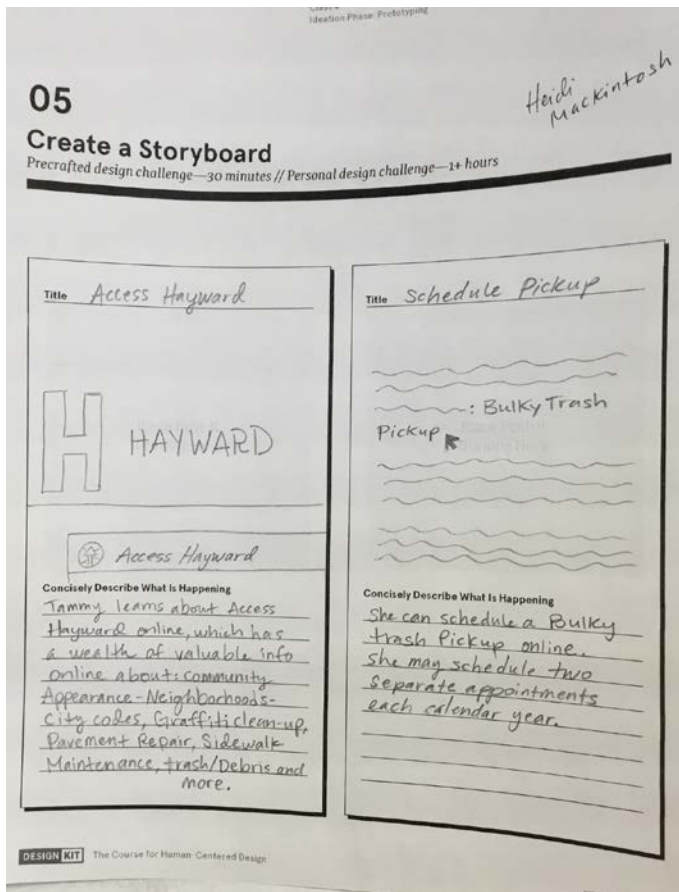 Ideation Phase: Prototyping
05
Heidi
Mackintosh
Create a Storyboard
Precrafted design challenge—30 minutes // Personal design challenge—1+ hours
Title Access Hayward
H HAYWARD
Access Hayward
Concisely Describe What Is Happening
Tammy learns about Access
Hayward online, which has
a wealth of valuable info
online about: community
Appearance-Neighborhoods-
City codes, Graffiti clean-up,
Pavement Repair, Sidewalk
Maintenance, trash/Debris and
more.
Title Schedule Pickup
: Bulky Trash
Pickup
Concisely Describe What Is Happening
She can schedule a Bulky
trash Pickup online.
She may schedule two
separate appointments
each calendar year.
DESIGN KIT The Course for Human-Centered Design